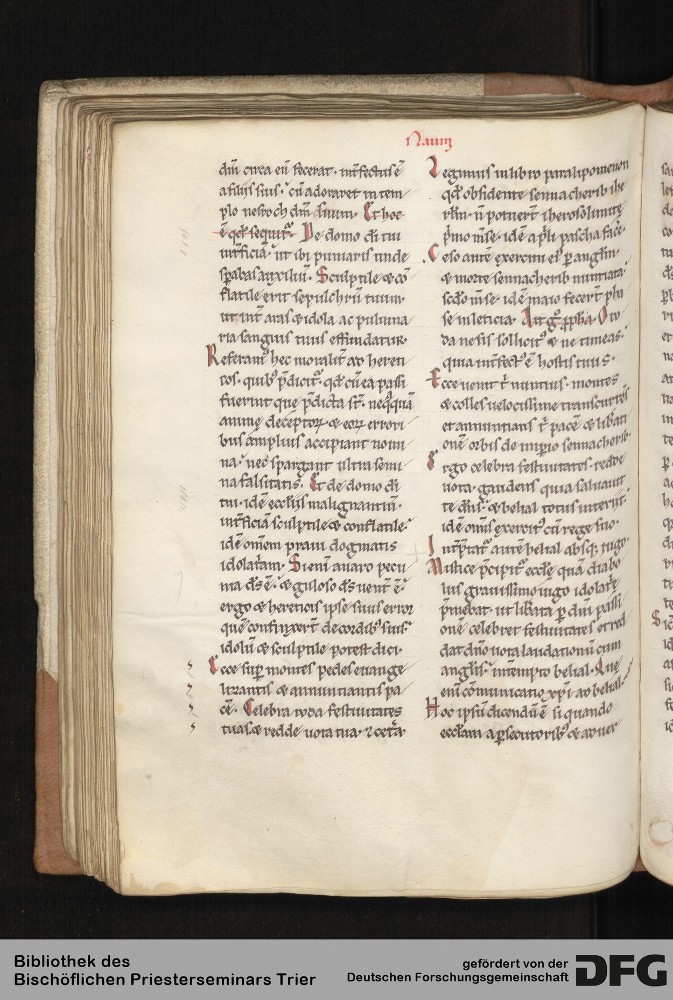 Naum
dm̄ circa eū fecerat · int̄fectus ē
a filiis suis · cū adoraret in tem
plo nesroch dm̄ suum · Et hoc
ē qd̄ sequit᷑ · De domo dī tui
int̄ficiā · ut ibi puniaris unde
sp̄abas auxiliū · Sculptile & cō
flatile erit sepulchrū tuum ·
ut int̄ aras & idola ac puluina
ria sanguis tuus effundatur ·
Referam᷒ hec moralit̄ ad hereti
cos · quib᷒ p̄dicit᷑ · qd̄ cū ea passi
fuerint que p̄dicta st̄ · neq̄quā
anime deceptoꝝ & eoꝝ errori
bus amplius accipiant nomi
na · nec spargant ultra semi
na falsitatis · Et de domo dī
tui · idē eccl̄iis malignantiū ·
int̄ficiā sculptile & conflatile ·
idē omem praui dogmatis
idolatr̄iam · Si enī auaro pecu
nia ds̄ ē · & guloso ds̄ uent̄ ē ·
ergo & hereticis ipse suus error
quē confinxer̄t de cordib᷒ suis ·
idolū & sculptile potest dici ·
Ecce sup̄ montes pedes euange
lizantis & annuntiantis pa
cē · Celebra iuda festiuitates
tuas & redde uota tua · ⁊ cet̄a ·
Legimus in libro paralipomenon
qd̄ obsidente sennacherib ihr
rłm · n̄ potuer̄t iherosolimite
p̄mo m̄se · idē ap̄li pascha facē ·
Ceso aut̄e exercitu ei᷒ p̄ angl̄m ·
& morte sennacherib nuntiata ·
sc̄do m̄se · idē maio fecer̄t pha
se in leticia · Ait g͛ ꝓph̄a · O iu
da ne sis sollicit᷒ & ne timeas ·
quia int̄fect᷒ ē hostis tuus ·
Ecce uenit t̄ nuntius · montes
& colles uelocissime transcurrēs
et annuntians t̄ pacē & lib̄ati
onē orbis de imp̄io sennacherib ·
Ergo celebra festiuitates · redde
uota · gaudens quia saluauit
te ds̄ · & belial totus interiit ·
idē om̄is exercit᷒ cū rege suo ·
Int̄p̄tat᷑ aut̄e belial absq; iugo ·
Mistice p̄cipit᷑ eccl̄ę quā diabo
lus grauissimo iugo idolatr̄ę
p̄mebat · ut lib̄ata p̄ dn̄i passi
onē celebret festiuitates et red
dat dn̄o uota laudationū cum
angl̄is · int̄empto belial · Que
eni cōmunicatio xp̄i ad belial ·
Hoc ipsū dicendū ē si quando
eccl̄am a p̄secutorib᷒ & aduer
Bibliothek des
Bischöflichen Priesterseminars Trier
gefördert von der
Deutschen Forschungsgemeinschaft
DFG